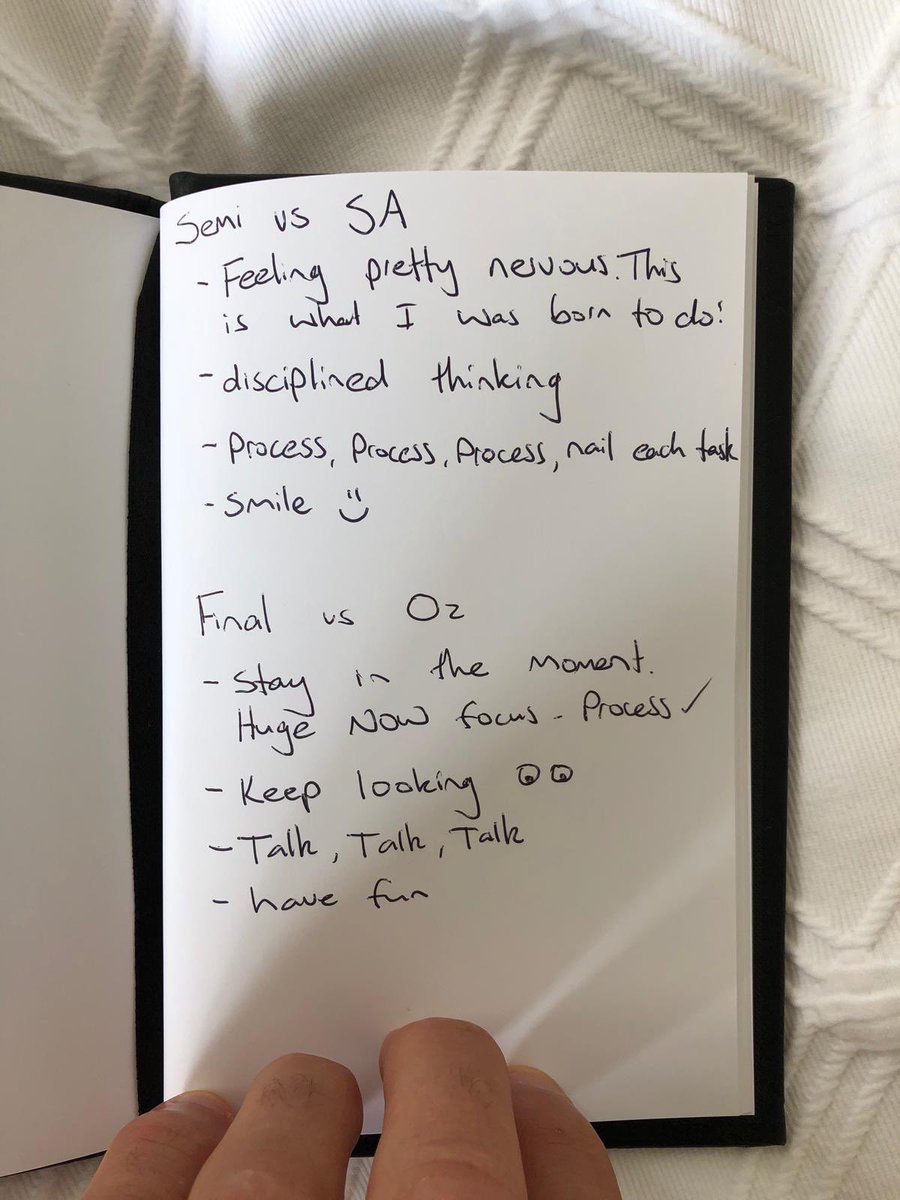 Semi vs SA
- Feeling pretty nervous. This
is what I was born to do!
- disciplined thinking
- Process, Process, Process, nail each task
- Smile
Final vs Oz
- Stay in the moment.
Huge NOW focus - Process ✓
- Keep looking
- Talk, Talk, Talk
- have fun